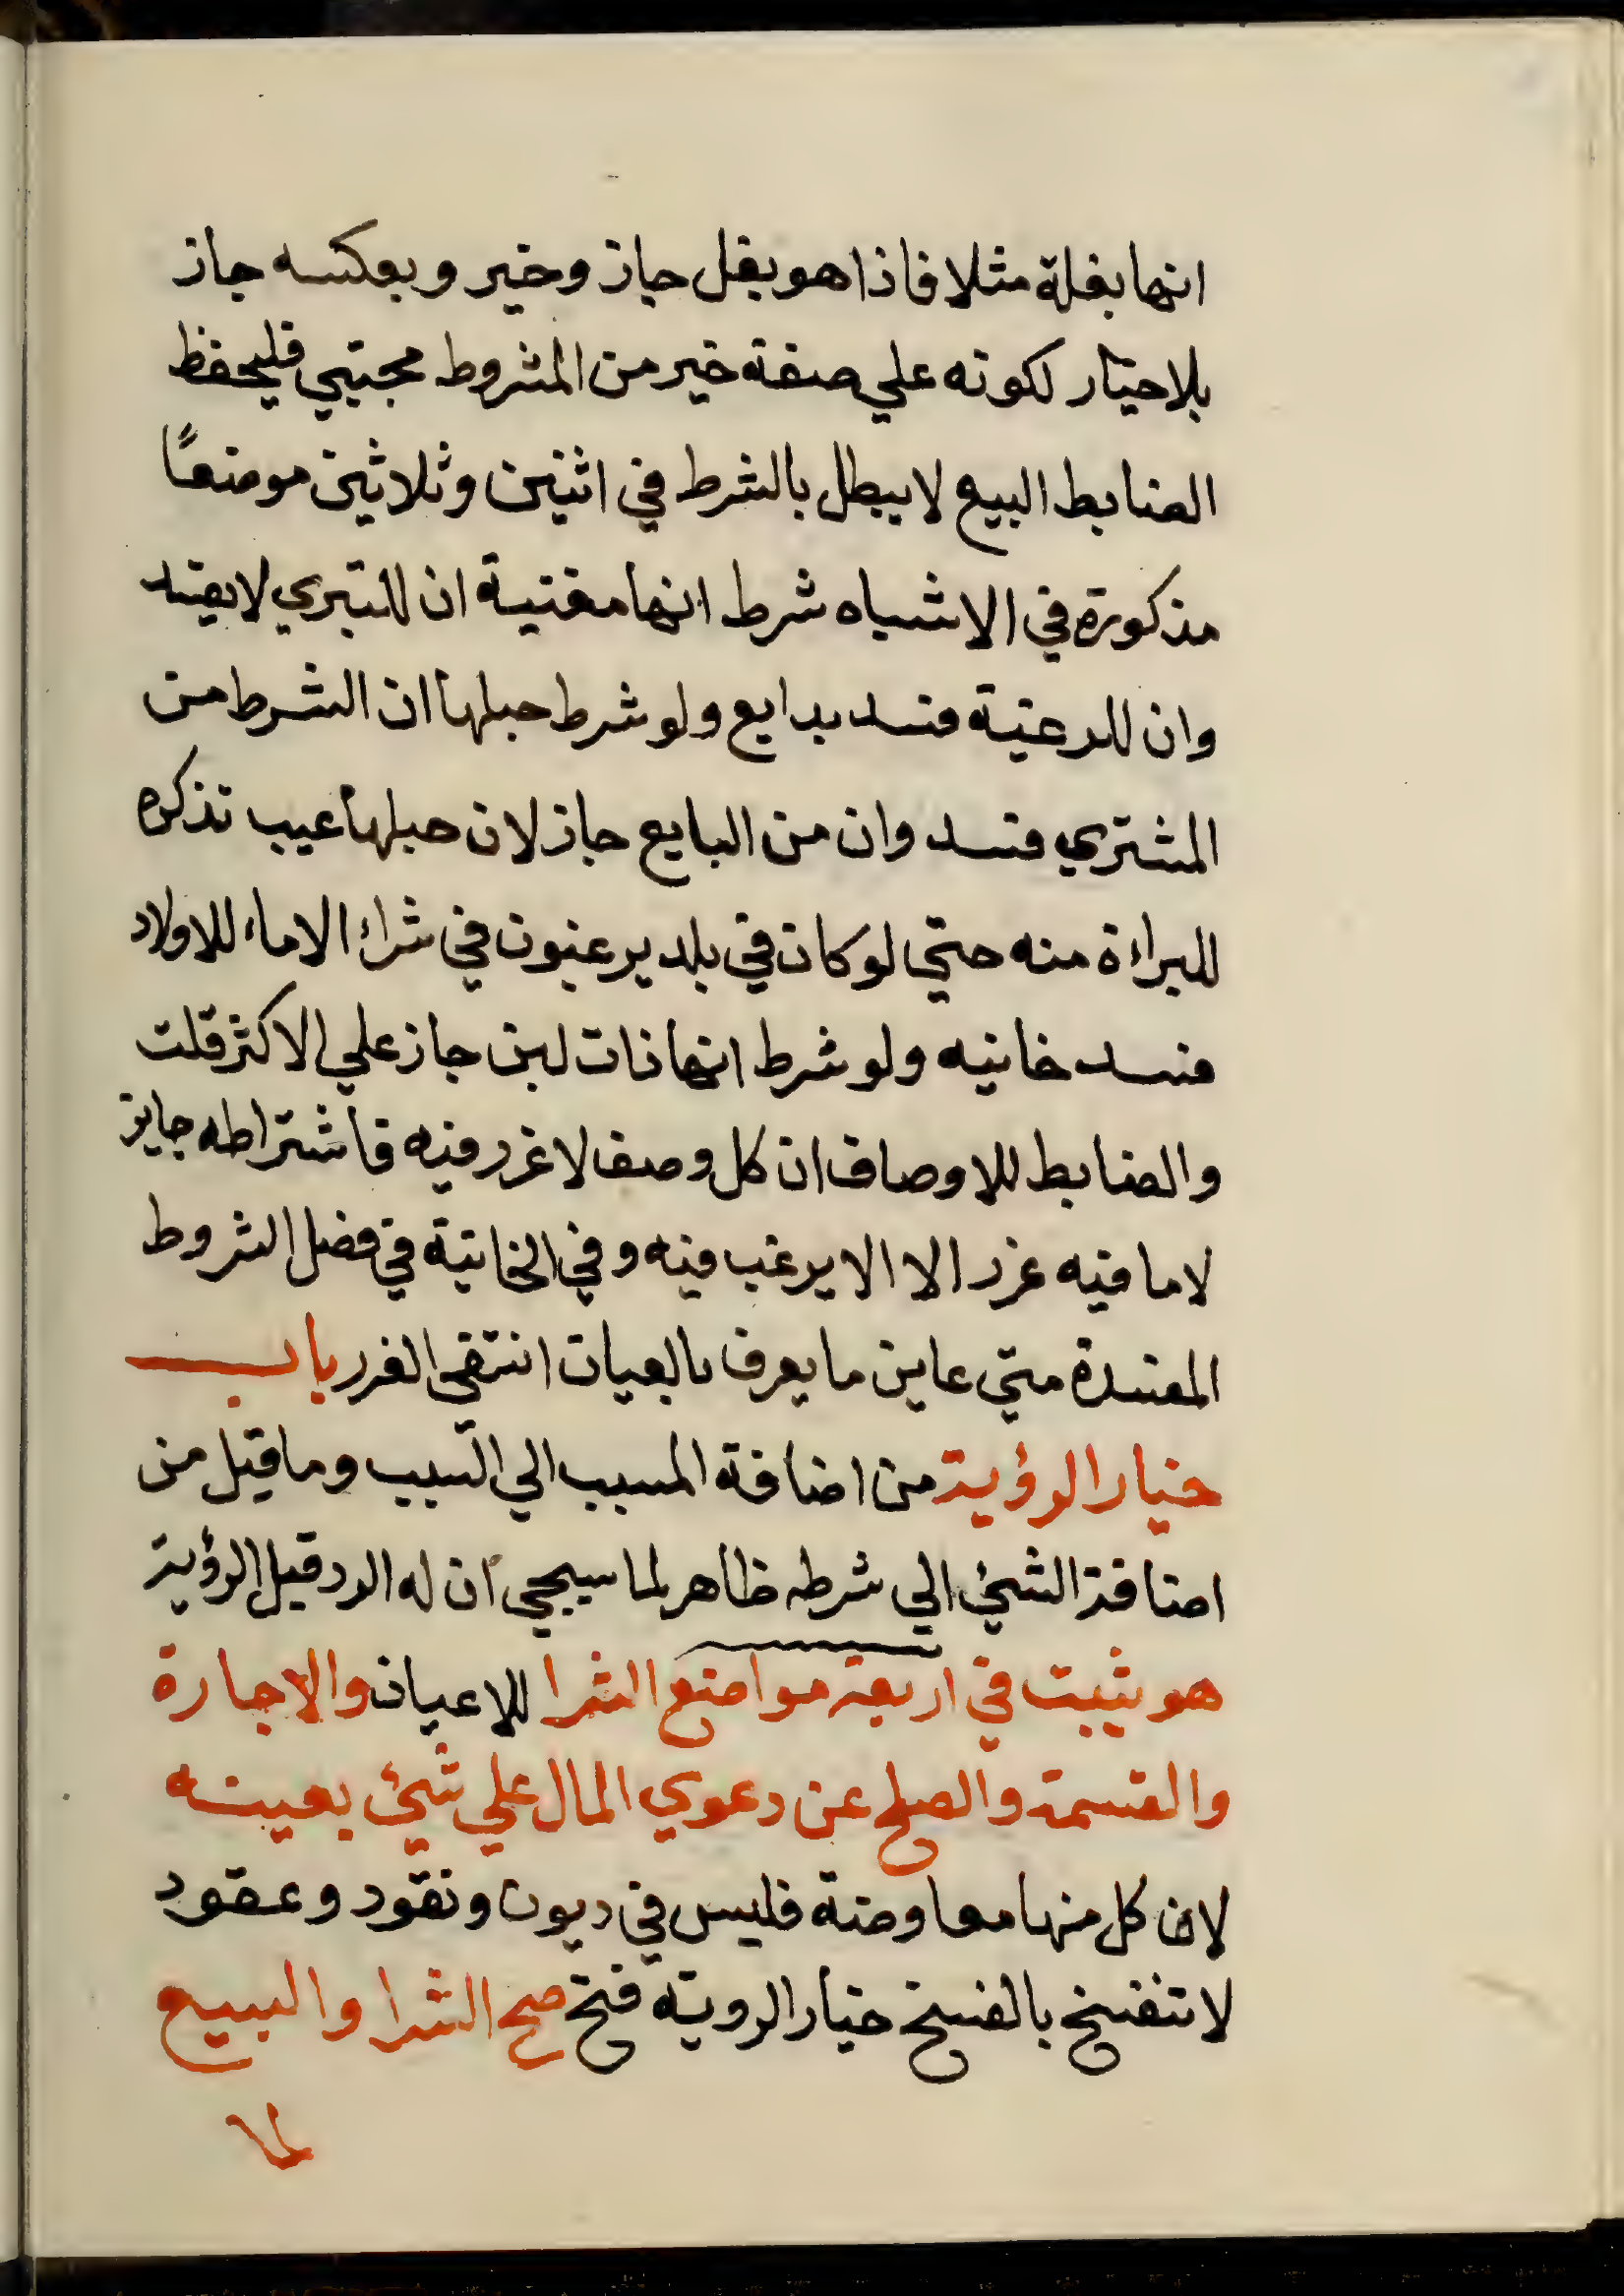 انها بغلة مثلا فاذا هو بغل جاز وخير وبعكسه جاز
بلا خيار لكونه علي صفة خير من المشروط مجتبي فليحفظ
الضابط البيع لا يبطل بالشرط في اثنين وثلاثين موضعًا
مذكورة في الاشباه شرط انها مغنية ان للتبري لا يفسد
وان للرغبة فسد بدايع ولو شرط حبلها ان الشرط من
المشتري فسد وان من البايع جاز لان حبلها عيب تذكره
للبراءة منه حتي لو كان في بلد يرغبون في شراء الاماء للاولاد
فسد خانيه ولو شرط انها ذات لبن جاز علي الاكثر قلت
والضابط للاوصاف ان كل وصف لا غرر فيه فاشتراطه جايز
لا ما فيه غرر الا الا يرغب فيه وفي الخانية في فصل الشروط
المفسدة متي عاين ما يعرف بالعيان انتفي الغرر باب
خيار الرؤية من اضافة المسبب الي السبب وما قيل من
اضافة الشئ الي شرطه ظاهر لما سيجي ان له الرد قبل الرؤية
هو يثبت في اربعة مواضع الشرا للاعيان والاجارة
والقسمة والصلح عن دعوي المال علي شئ بعينه
لان كل منها معاوضة فليس في ديون ونقود وعقود
لا تنفسخ بالفسخ خيار الروية فتح صح الشرا والبيع
لما